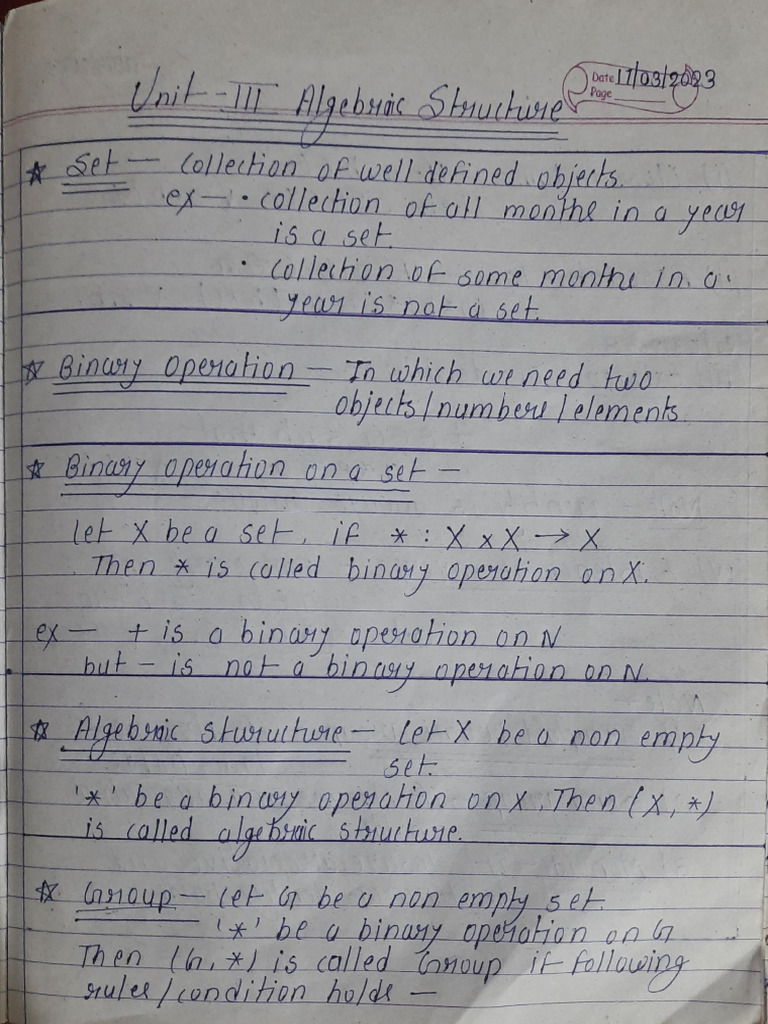 Date 11/03/2023
Page
Unit - III Algebraic Structure
☆ Set — collection of well defined objects.
ex — • collection of all months in a year
is a set.
• collection of some months in a
year is not a set.
☆ Binary operation — In which we need two
objects/numbers/elements
☆ Binary operation on a set —
let X be a set, if * : X x X → X
Then * is called binary operation on X.
ex — + is a binary operation on N
but - is not a binary operation on N.
☆ Algebraic sturucture — let X be a non empty
set.
'*' be a binary operation on X. Then (X, *)
is called algebraic structure.
☆ Group — let G be a non empty set.
'*' be a binary operation on G
Then (G, *) is called Group if following
rules/condition holds —